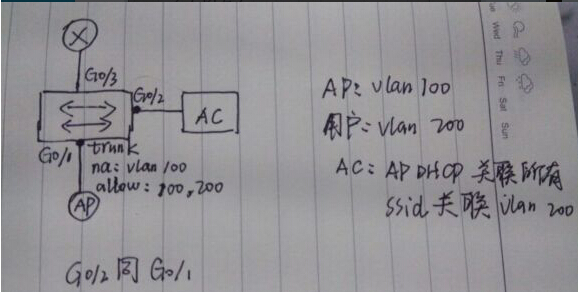 G0/3
G0/2
AC
G0/1
trunk
na: vlan 100
allow: 100,200
AP
G0/2 同 G0/1
AP: vlan 100
用户: vlan 200
AC: AP DHCP 关联所有
ssid 关联 vlan 200
Tue Wed Thu Fri Sat Sun